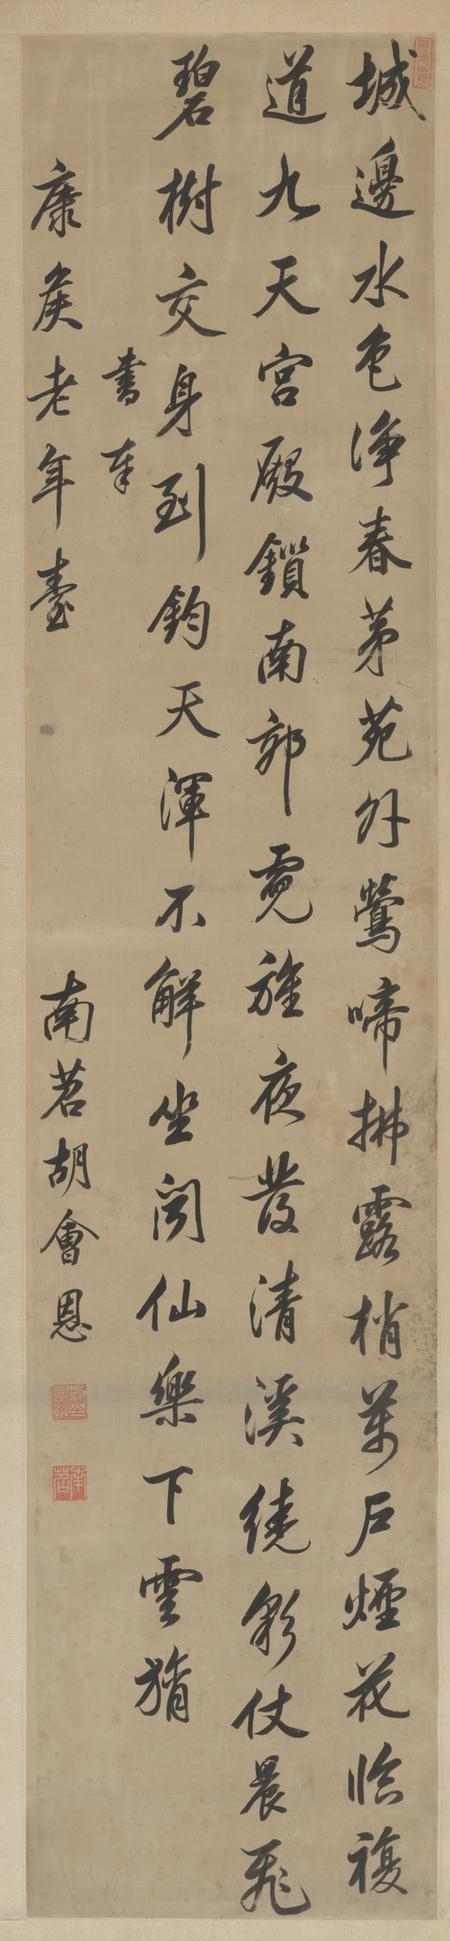 城邊水色淨春茅苑外鶯啼拂露梢萬戶煙花臨複
道九天宮殿鎖南郊霓旌夜發清溪繞彩仗晨飛
碧樹交身到鈞天渾不解坐聞仙樂下雲旓
書奉
康侯老年臺
南苕胡會恩